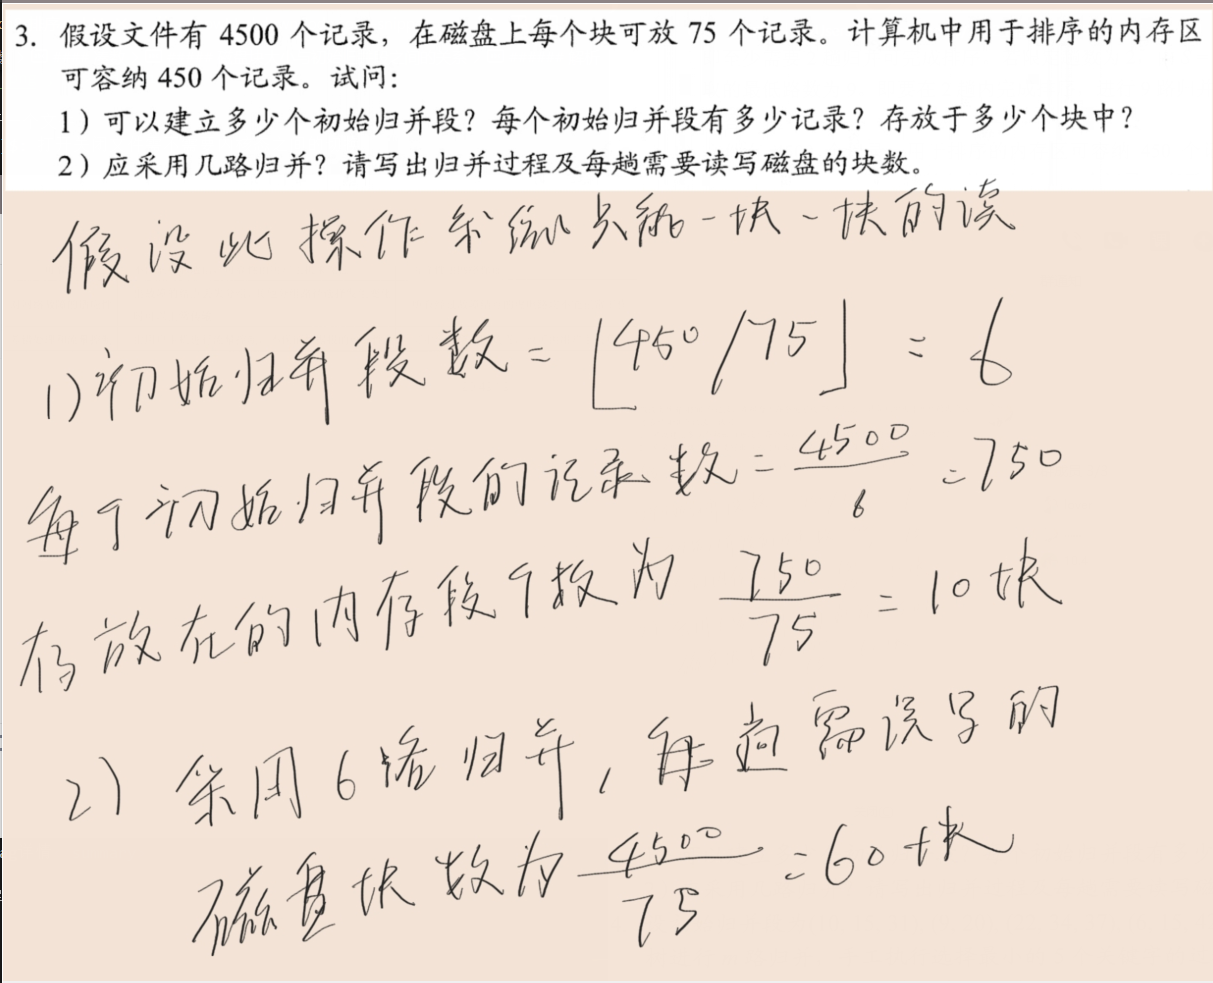 3. 假设文件有 4500 个记录，在磁盘上每个块可放 75 个记录。计算机中用于排序的内存区
可容纳 450 个记录。试问：
1）可以建立多少个初始归并段？每个初始归并段有多少记录？存放于多少个块中？
2）应采用几路归并？请写出归并过程及每趟需要读写磁盘的块数。
假设此操作系统只能一块一块的读
1) 初始归并段数 = ⌊450/75⌋ = 6
每个初始归并段的记录数 = 4500/6 = 750
存放在的内存段个数为 750/75 = 10块
2) 采用6路归并，每趟需读写的
磁盘块数为 4500/75 = 60块